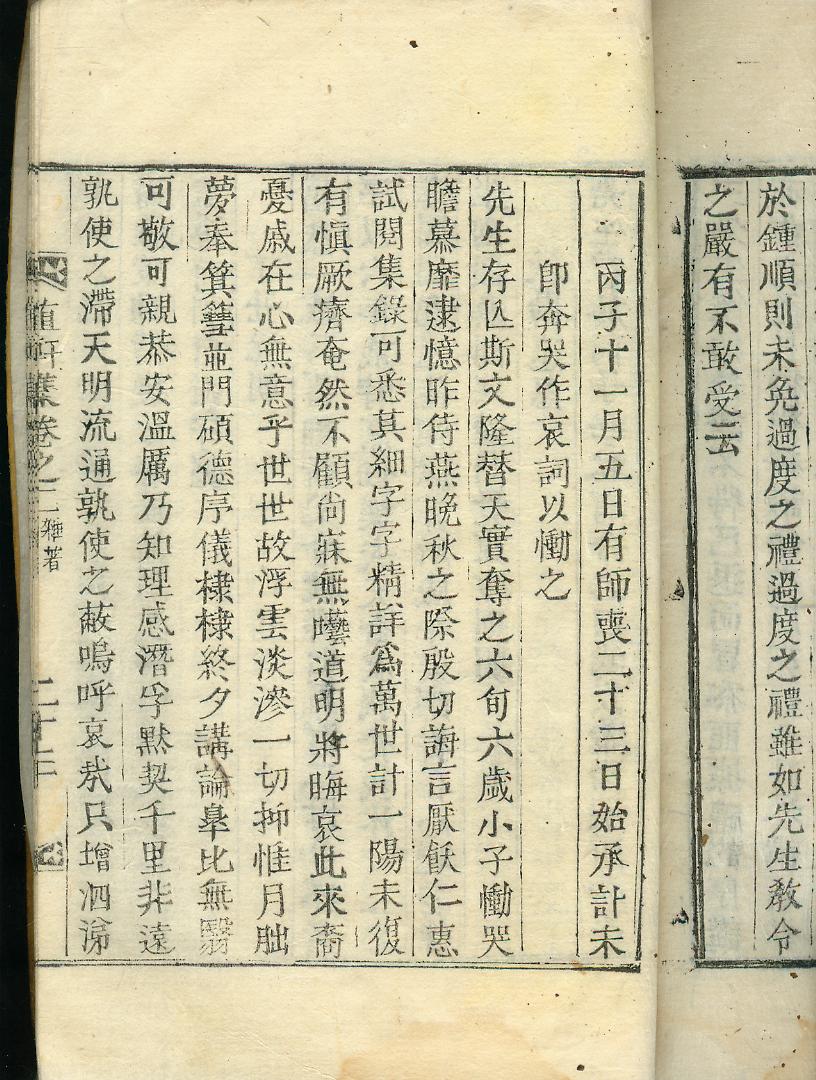 於鍾順則未免過度之禮過度之禮雖如先生教令
之嚴有不敢受云
丙子十一月五日有師喪二十三日始承訃未
卽奔哭作哀詞以慟之
先生存亾斯文隆替天實奪之六旬六歲小子慟哭
瞻慕靡逮憶昨侍燕晚秋之際殷切誨言厭飫仁惠
試閱集錄可悉其細字字精詳爲萬世計一陽未復
有愼厥癠奄然不顧尙寐無囈道明將晦哀此來裔
憂戚在心無意乎世世故浮雲淡滲一切抑惟月朏
夢奉箕篲並門碩德序儀棣棣終夕講論皐比無翳
可敬可親恭安溫厲乃知理感潛孚默契千里非遠
孰使之滯天明流通孰使之蔽嗚呼哀哉只增泗涕
集卷之二 雜著